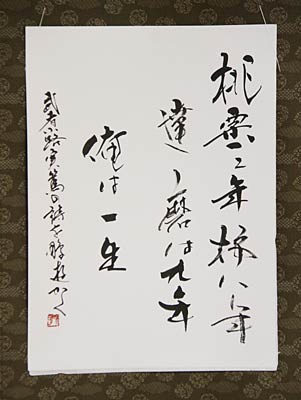 桃栗三年柿八年
達磨は九年
俺は一生
武者小路実篤の詩